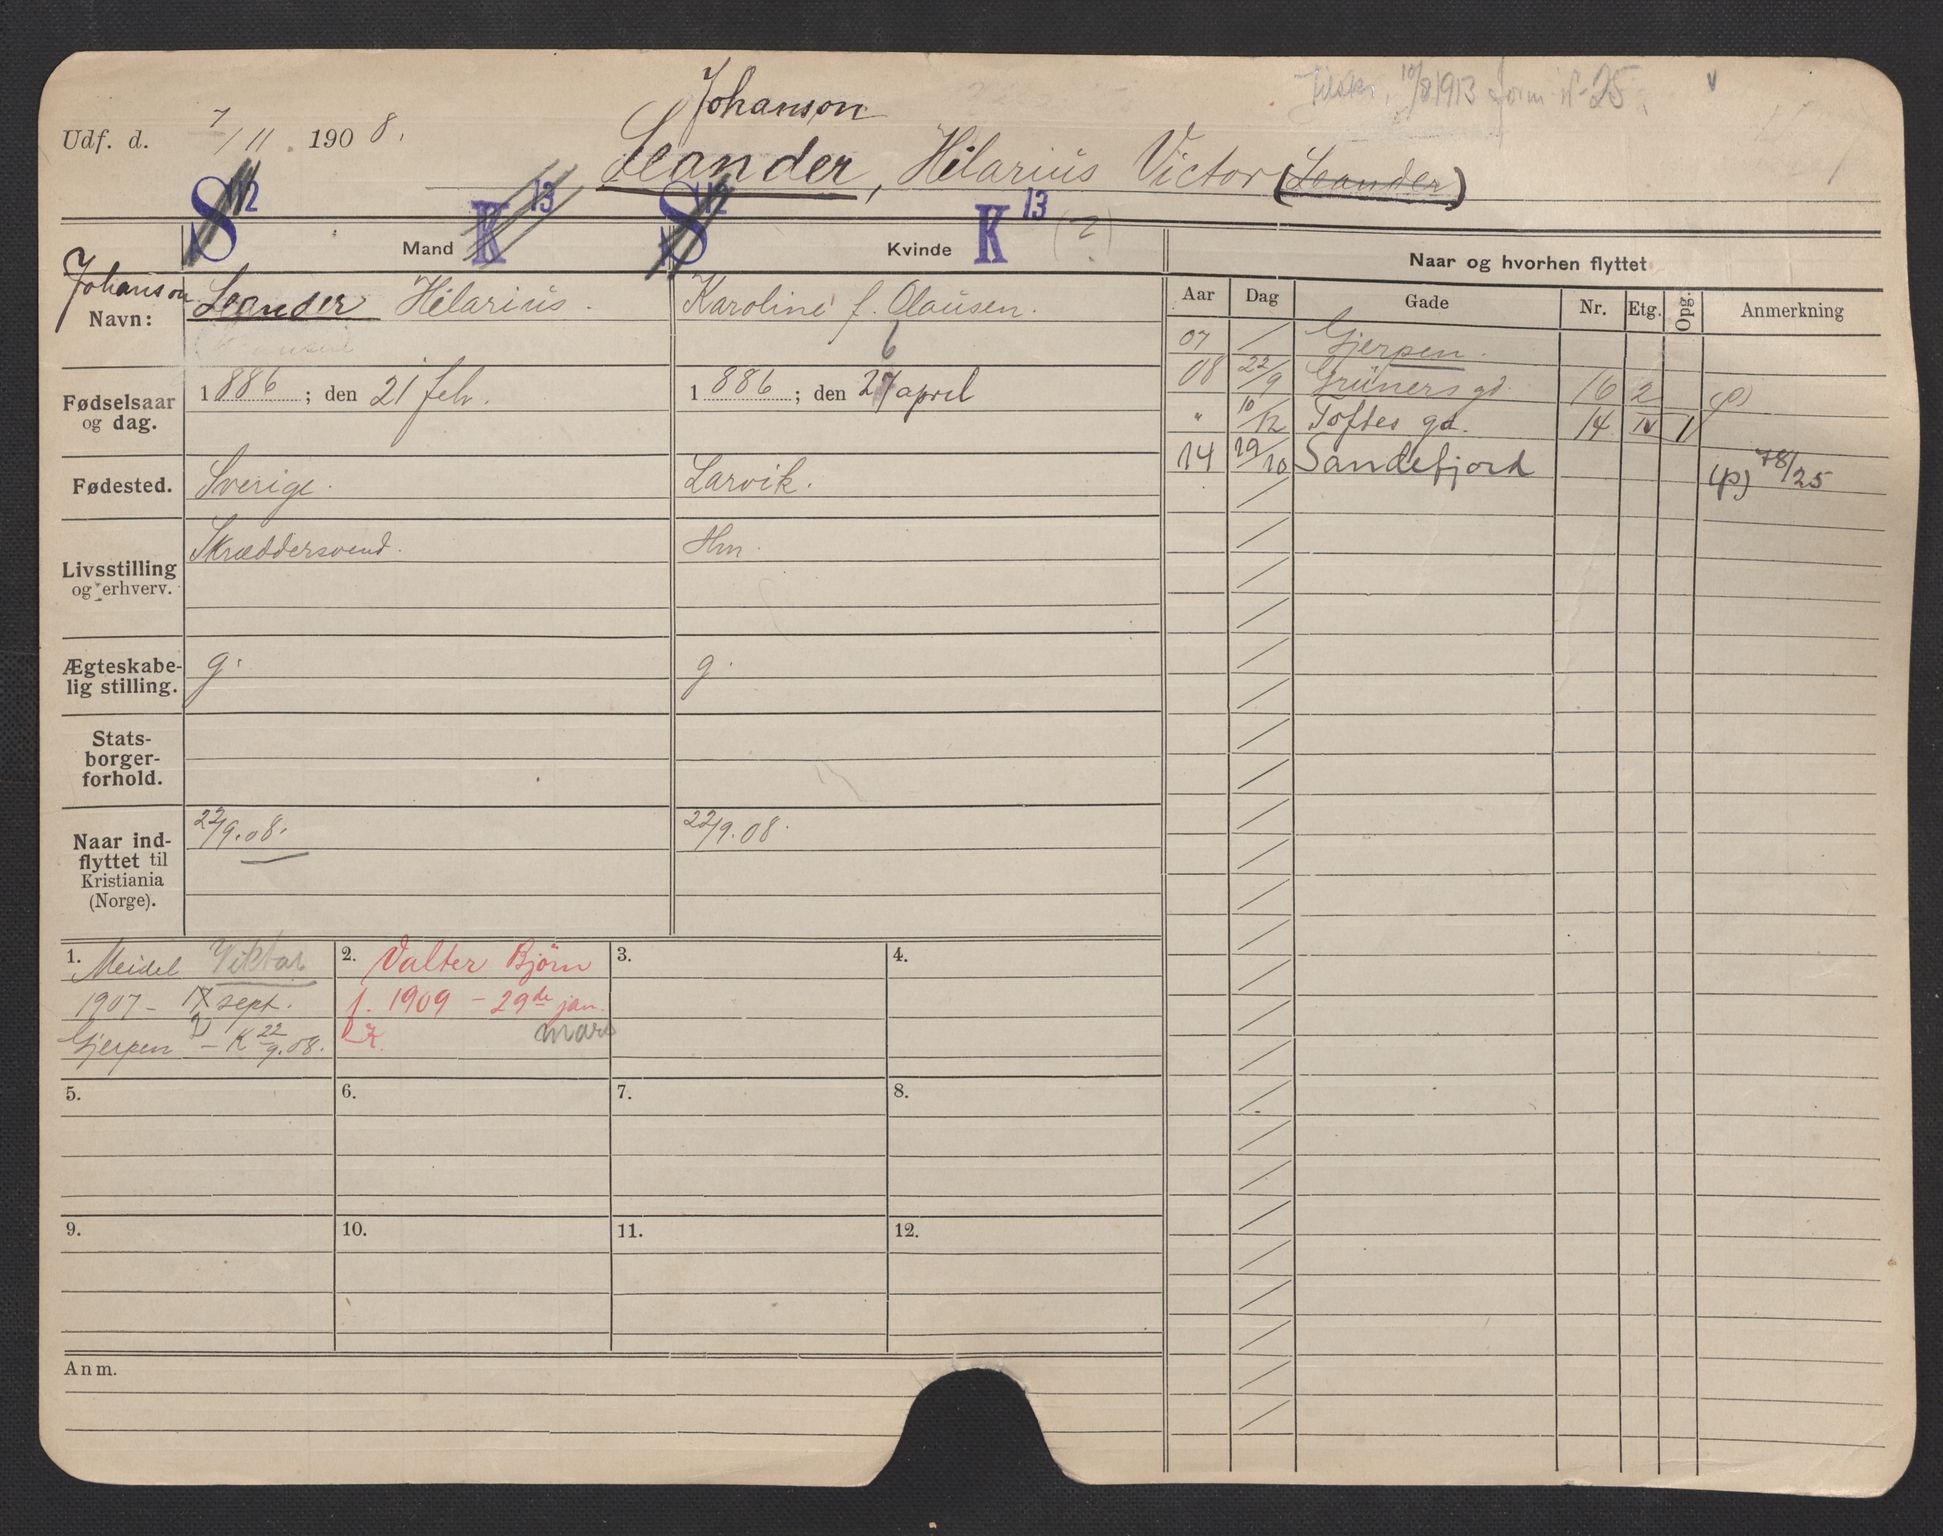 Johanson
Udf. d. 7/11. 1908.
Leander, Hilarius Victor (Leander)
10/8 1913
25
S 12
K 13
S 12
K 13 (?)
Mand
Kvinde
Naar og hvorhen flyttet
Johanson
Navn: Leander Hilarius. Karoline f. Clausen.
Aar Dag Gade Nr. Etg. Opg. Anmerkning
07 Gjerpen.
08 22/9 Grüners gd. 16 2 (p)
" 10/12 Toftes gd. 14 IV 1
14 29/10 Sandefjord (p) 78/25
Fødselsaar og dag. 1886; den 21 febr. 1886; den 27 april
6
Fødested. Sverige. Larvik.
Livsstilling og erhverv. Skræddersvend. Hm.
Ægteskabe-
lig stilling. g. g.
Stats-
borger-
forhold.
Naar ind-
flyttet til
Kristiania
(Norge). 22/9.08. 22/9.08.
1. Meidel Viktor
1907 - 17 sept.
2
Gjerpen - K 22/9.08.
2. Valter Bjørn
f. 1909 - 29de jan.
mars
K.
3.
4.
5.
6.
7.
8.
9.
10.
11.
12.
Anm.